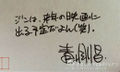 ジンは、来年の映画に
出る予定だよん(笑)
青山剛昌